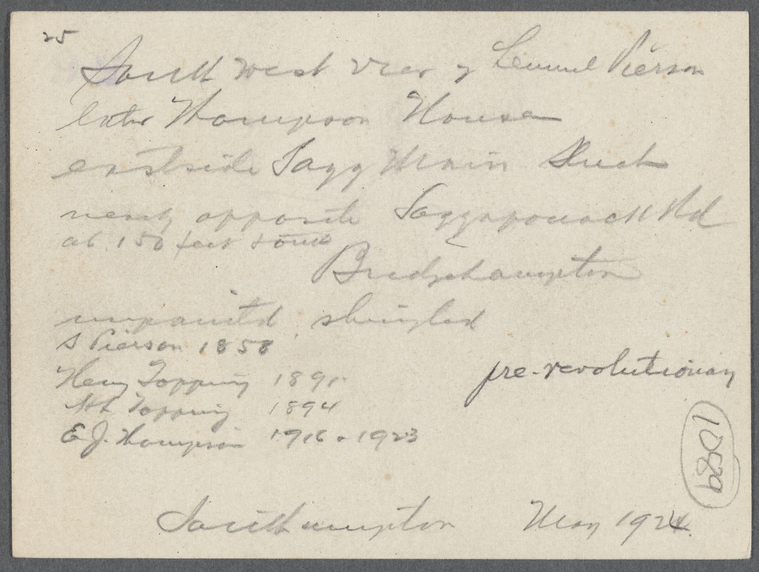 25
South West view of Lemuel Pierson
later Thompson House
eastside Sagg Main Street
nearly opposite Saggaponack Rd
ab. 150 feet south
Bridgehampton
unpainted, shingled
S Pierson 1858
Henry Topping 1891
pre-revolutionary
Topping 1894
E.J. Thompson 1916 - 1923
1089
Southampton May 1924.